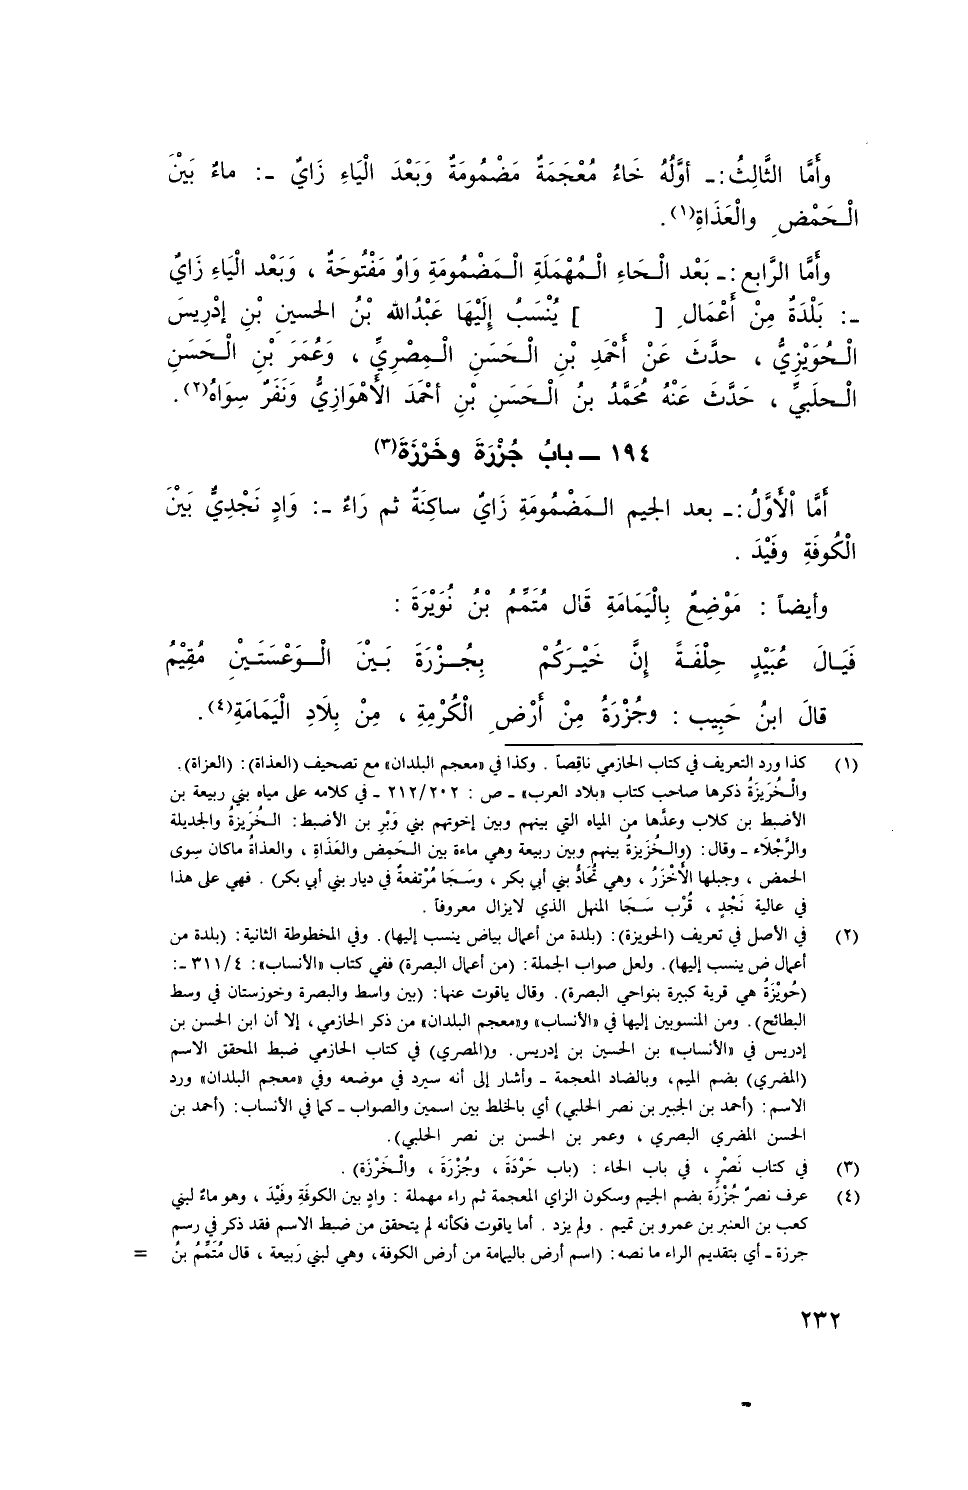 وأَمَّا الثَّالِثُ :ـ أوَّلُهُ خَاءٌ مُعْجَمَةٌ مَضْمُومَةٌ وَبَعْدَ الْيَاءِ زَايٌ ـ: ماءٌ بَيْنَ
الْـحَمْضِ والْعَذَاةِ(١).
وأَمَّا الرَّابع :ـ بَعْد الْـحَاءِ الْـمُهْمَلَةِ الْـمَضْمُومَةِ وَاوٌ مَفْتُوحَةٌ ، وَبَعْد الْيَاءِ زَايٌ
ـ: بَلْدَةٌ مِنْ أَعْمَالِ [ ] يُنْسَبُ إِلَيْهَا عَبْدُالله بْنُ الحسين بْنِ إدْرِيسَ
الْـحُوَيْزِيُّ ، حدَّثَ عَنْ أَحْمَدِ بْنِ الْـحَسَنِ الْـمِصْرِيِّ ، وَعُمَرَ بْنِ الْـحَسَنِ
الْـحلَبيِّ ، حَدَّثَ عَنْهُ مُحَمَّدُ بنُ الْـحَسَنِ بْنِ أحْمَدَ الأَهْوَازِيُّ وَنَفَرٌ سِوَاهُ(٢).
١٩٤ ــ بابُ جُزْرَةَ وخَرْزَةَ(٣)
أمَّا اْلأَوَّلُ :ـ بعد الجيم الْـمَضْمُومَةِ زَايٌ ساكِنَةٌ ثم رَاءٌ ـ: وَادٍ نَجْدِيٌّ بَيْنَ
الْكُوفَةِ وفَيْدَ .
وأيضاً : مَوْضِعٌ بِالْيَمَامَةِ قَال مُتَمِّمُ بْنُ نُوَيْرَةَ :
فَيَـالَ عُبَيْدٍ حِلْفَـةً إِنَّ خَيْـرَكُمْ بِجُـزْرَةَ بَيـنَ الْـوَعْسَتَـيْنِ مُقِيْمُ
قالَ ابنُ حَبِيب : وجُزْرَةُ مِنْ أَرْضِ الْكُرْمِةِ ، مِنْ بِلَادِ الْيَمَامَةِ(٤).
(١) كذا ورد التعريف في كتاب الحازمي ناقِصاً . وكذا في «معجم البلدان» مع تصحيف (العذاة) : (العزاة).
والْـخُرَيزةُ ذكرها صاحب كتاب «بلاد العرب» ـ ص : ٢١٢/٢٠٢ ـ في كلامه على مياه بني ربيعة بن
الأضبط بن كلاب وعدَّها من المياه التي بينهم وبين إخوتهم بني وَبْرِ بن الأضبط : الـخُرَيزةُ والجديلة
والرَّجْلَاء ـ وقال : (والـخُزَيزةُ بينهم وبين ربيعة وهي ماءة بين الـحَمِض والعَذَاةِ ، والعذاةُ ماكان سِوى
الحمض ، وجبلها الأَخْزَرُ ، وهي تُحَادُّ بني أبي بكر ، وسَـجَا مُرْتفعةٌ في ديار بني أبي بكر) . فهي على هذا
في عالية نَجْدٍ ، قُرْب سَـجَا المنهل الذي لايزال معروفاً .
(٢) في الأصل في تعريف (الحويزة) : (بلدة من أعمال بياض ينسب إليها). وفي المخطوطة الثانية : (بلدة من
أعمال ض ينسب إليها). ولعل صواب الجملة : (من أعمال البصرة) ففي كتاب «الأنساب» : ٣١١/٤ ـ:
(حُويْزَةُ هي قرية كبيرة بنواحي البصرة). وقال ياقوت عنها : (بين واسط والبصرة وخوزستان في وسط
البطائح). ومن المنسوبين إليها في «الأنساب» و«معجم البلدان» من ذكر الحازمي، إلا أن ابن الحسن بن
إدريس في «الأنساب» بن الحسين بن إدريس. و(المصري) في كتاب الحازمي ضبط المحقق الاسم
(المضري) بضم الميم، وبالضاد المعجمة ـ وأشار إلى أنه سيرد في موضعه وفي «معجم البلدان» ورد
الاسم : (أحمد بن الجبير بن نصر الحلبي) أي بالخلط بين اسمين والصواب ـ كما في الأنساب : (أحمد بن
الحسن المضري البصري ، وعمر بن الحسن بن نصر الحلبي).
(٣) في كتاب نَصْرٍ ، في باب الحاء : (باب حَرْدَة ، وجُزْرَةَ ، والْـخَرْزَة) .
(٤) عرف نصرٌ جُزْرَة بضم الجيم وسكون الزاي المعجمة ثم راء مهملة : وادٍ بين الكوفةِ وفَيْدَ ، وهو ماءٌ لبني
كعب بن العنبر بن عمرو بن تميم . ولم يزد . أما ياقوت فكأنه لم يتحقق من ضبط الاسم فقد ذكر في رسم
جرزة ـ أي بتقديم الراء ما نصه : (اسم أرض باليمامة من أرض الكوفة، وهي لبني رَبيعة ، قال مُتَمِّمُ بنُ =
٢٣٢